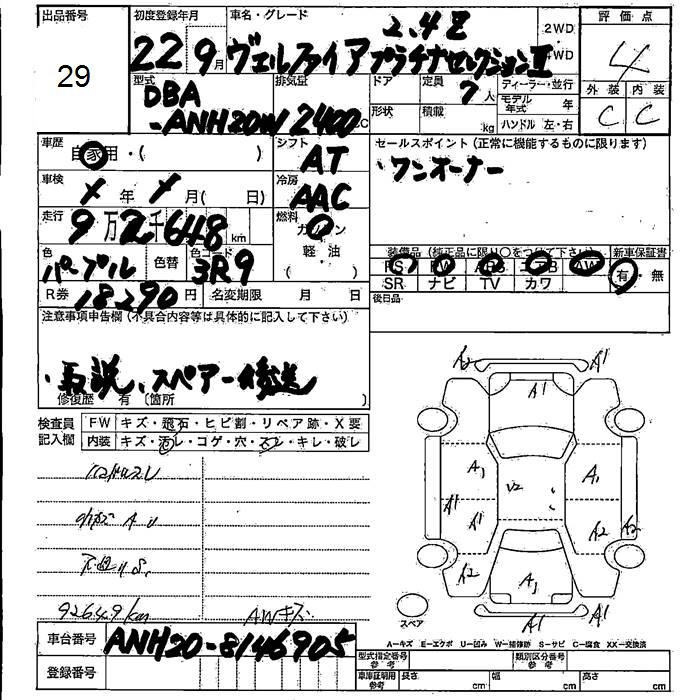 出品番号 初度登録年月 車名・グレード 評価点
29
22 9月 ヴェルファイア プラチナセレクションⅡ
2.4Z
2WD
4WD
4
型式 排気量 ドア 定員 ディーラー・並行 外装 内装
DBA
-ANH20W 2400CC
7人
モデル年式 年
形状 積載 kg ハンドル 左・右
C C
車歴 自家用・( ) シフト AT
セールスポイント(正常に機能するものに限ります)
・ワンオーナー
車検 年 月( 日) 冷房 AAC
走行 9万2千648km 燃料 ガソリン
軽油・
( )
色 パープル 色替 色コード 3R9
装備品(純正品に限り○をつけて下さい) 新車保証書
PS PW ABS エアB AW 有・無
SR ナビ TV カワ
R券 18290円 名変期限 月 日
後日品
注意事項申告欄(不具合内容等は具体的に記入して下さい)
・取説、スペアー後送
修復歴 有〔箇所 〕
検査員 FW キズ・飛石・ヒビ割・リペア跡・X要
記入欄 内装 キズ・汚レ・コゲ・穴・スレ・キレ・破レ
92649km AWキズ
A2 A1 A1
A1 A1
A1 A1 A2 A2
A2 A1
A1 A1
スペア
A-キズ E-エクボ U-凹み W-補修跡 S-サビ C-腐食 XX-交換済
車台番号 ANH20-8146905
型式指定番号 参考 類別区分番号 参考
登録番号
車庫証明用 参考 長さ cm 幅 cm 高さ cm